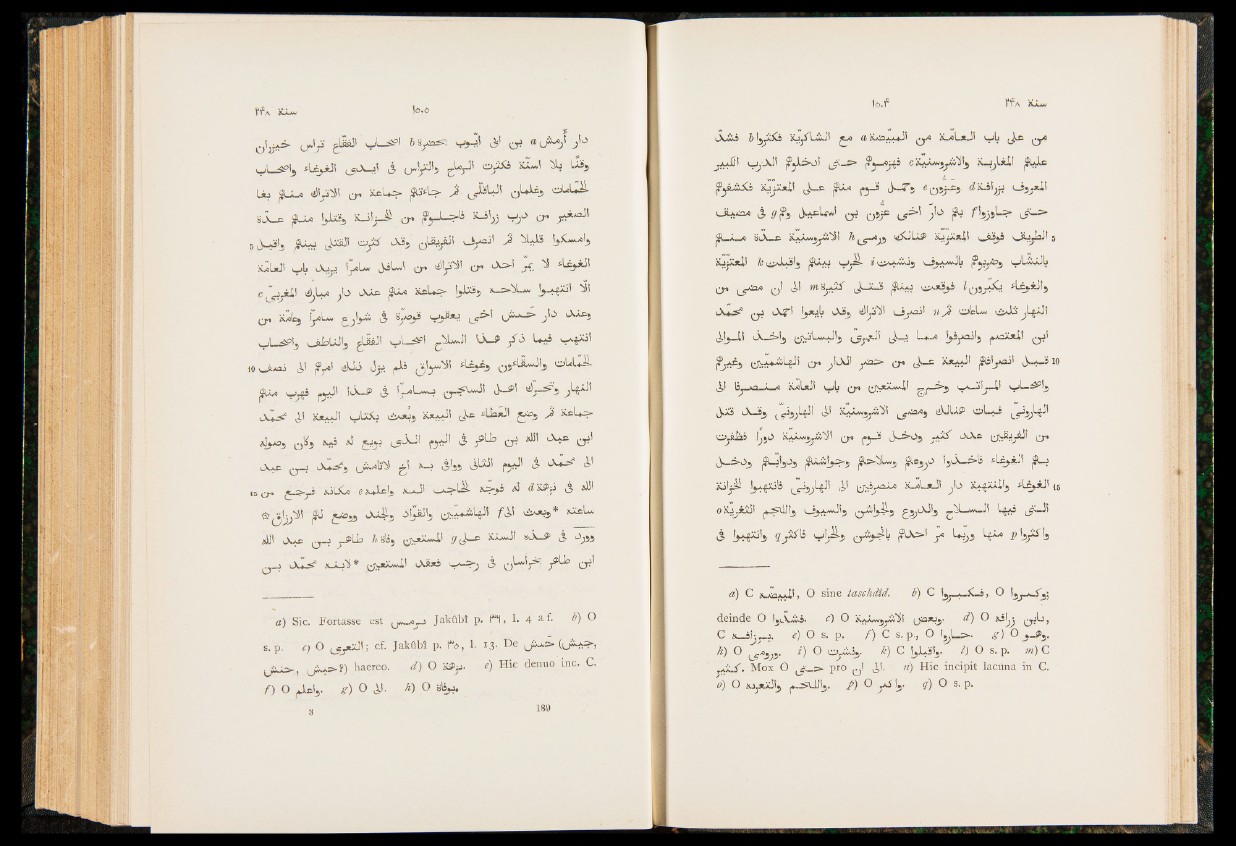 سنة ٢٤٨
١٥٠٤
من على باب العامّة من المبيّضة a مع الشاكريّة فكثروا b فشدّ
عليهم المغاربة والاشروسنيّة c فهزموهم حتى ادخلوهم الدرب الكبير
المعروف بزرافة d وعزّون e وحمل قوم منهم على المعتزّيّة فكشفوهم
حتى جاوزوا f بهم دار اخى عزّون بن اسماعيل وهم g فى مضيق
5 الطريق فوقف المعتزّيّة هنالك ورمى h الاشروسنيّة عدّة منهم
بالنشّاب وضربوهم بالسيوف ونشبت i الحرب بينهم واقبلت k المعتزّيّة
والغوغاء يكبّرون l فوقعت بينهم قتلى كثيرة m الى ان مضى من
النهار ثلث ساعات ثمّ n انصرف الاتراك وقد بايعوا احمد بن محمّد
ابن المعتصم وانصرفوا ممّا يلى العمرىّ والبساتين واخذ الموالى
10 قبل انصرافهم البيعة على من حضر الدار من الهاشميّين وغيرهم
واصحاب المراتب وخرج المستعين من باب العامّة منصرفا الى
الهارونىّ فبات هنالك ومضى الاشروسنيّة الى الهارونىّ وقد قتل
من الفريقين عدد كثير ودخل قوم من الاشروسنيّة دورا فظفرت
بهم الغوغاء فاخذوا دروعهم وسلاحهم وجواشنهم ودوابّهم ودخل
15 الغوغاء والمنتهبة دار العامّة منصرفين الى الهارونىّ فانتهبوا الخزانة
التى فيها السلاح والدروع والجواشن والسيوف واللجم o
واكثروا p منها وربّما مرّ احدهم بالجواشن والحراب فاكثر q وانتهبوا فى
a) C المبيضة, O sine taschdîd. b) C فكبروا, O
deinde O فشدوا. c) O وبعض الاشروسنية. d) O زرافه,
C e) O s. p. f) C s. p., O جاروا. g) O وهو.
h) O ورومى. i) O وشرت. k) C واقبلوا. l) O s. p. m) C
كثير. Mox O حتى pro الى ان. n) Hic incipit lacuna in C.
o) O p) O q) O s. p.
سنة ٢٤٨
١٥٠٥
دار أرمش a بن ابى ايّوب بحضرة b اصحاب الفقّاع تراس خيزران
وقنا بلا اسنّة فكثرت الرماح والتراس فى ايدى الغوغاء واصحاب
الحمّامات وغلمان الباقلّى ثمّ جاءتهم جماعة من الاتراك منهم بغا
الصغير من درب زرافة فاجلوهم من الخزانة وقتلوا منهم عدّة
5 وامسكوا قليلا ثمّ انصرف الفريقان وقد كثرت القتلى بينهم واقبل
الغوغاء لا يمرّ احد من الاتراك من اسافل سامرّا يريد باب العامّة
الّا انتهبوا سلاحه وقتلوا جماعة منهم عند دار مبارك المغربىّ c
وعند دار حبش اخى يعقوب قوصرة فى شوارع سامرّا وعامّة من
انتهب فيما ذكر هذا السلاح اصحاب الفقّاع والناطف واصحاب
10 الحمّامات والسقّاءون وغوغاء الاسواق فلم يزل ذلك امرهم الى نصف
النهار وتحرّك اهل السجن بسامرّا فى هذا اليوم فهرب منهم
جماعة ثمّ وضع العطاء على البيعة وبعث بكتاب البيعة الى محمّد
ابن عبد الله بن طاهر فى اليوم الذى بويع له فيه وكان وصوله
الى محمّد فى اليوم الثانى ووافى به اخ لأتامش ومحمّد بن عبد
15 الله فى نزهة d له فوجّه الحاجب اليه واعلمه e مكانه فرجع من
ساعته *وبعث الى f الهاشميّين والقوّاد والجند ووضع لهم الارزاق ۞
وورد فى هذه السنة على g المستعين وفاة h طاهر بن عبد الله
ابن طاهر بخراسان فى رجب فعقد المستعين *لابنه محمّد بن
a) Sic. Fortasse est Jakûbî p. l. 4 a f. b) O
s. p. c) O التغرى; cf. Jakûbî p. ٣٥, l. 13. De حبش (جيش,
خنش, حبيش?) haereo. d) O نزهة. e) Hic denuo inc. C.
f) O واعلم. g) O الى. h) O بوفاة.
3
189